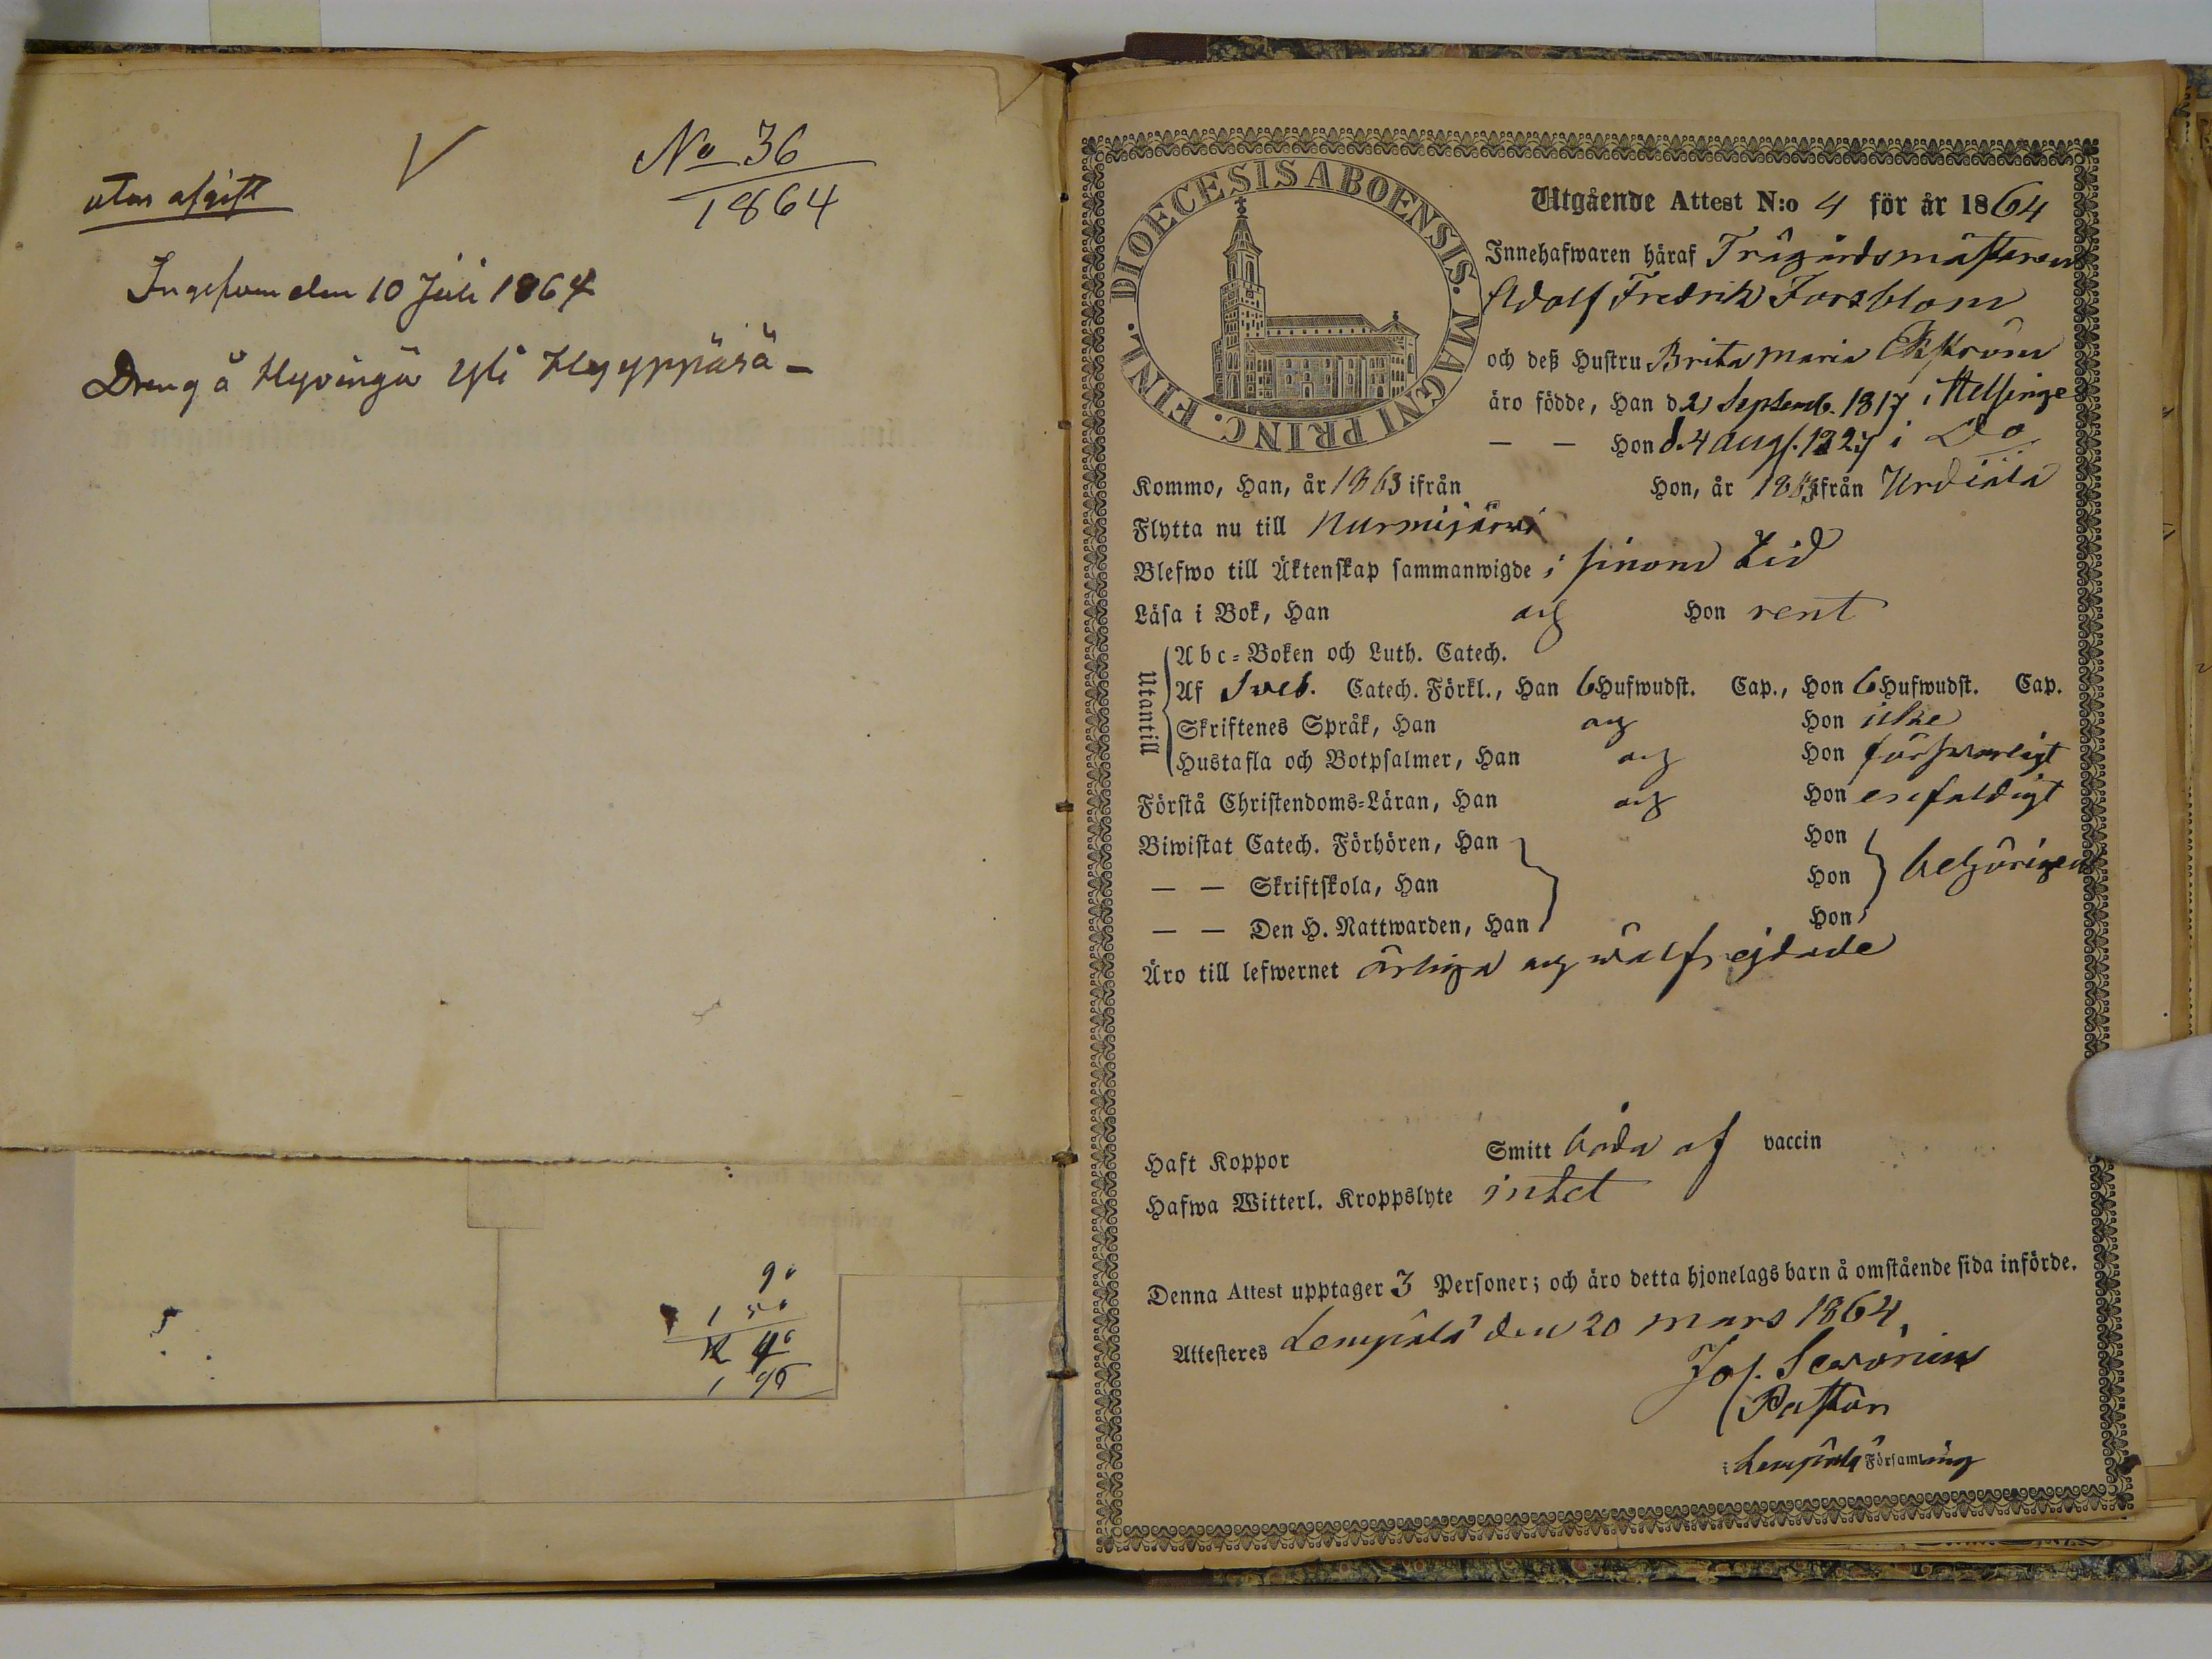 utan afgift
V
No 36
1864
Ingifven den 10 Juli 1864
Dreng å Hyvingä Yli Hyyppärä –
90
1 50
2 40
1 96
DIOECESIS ABOENSIS. MAGNI PRINC. FINL.
Utgående Attest N:o 4 för år 1864
Innehafwaren häraf Trägårdsmästaren
Adolf Fredrik Forsblom
och deß Hustru Brita Maria Ekström
äro födde, Han d 21 Septemb. 1817 i Helsinge
— — Hon d. 4 Aug. 1827 i Do
Kommo, Han, år 1863 ifrån Hon, år 1863 ifrån Urdiala
Flytta nu till Nurmijärvi
Blefwo till Äktenskap sammanwigde i sinom tid
Läsa i Bok, Han och Hon rent
Utantill
Abc-Boken och Luth. Catech.
Af Sveb. Catech. Förkl., Han 6 Hufwudst. Cap., Hon 6 Hufwudst. Cap.
Skriftenes Språk, Han och Hon icke
Hustafla och Botpsalmer, Han och Hon försvarligt
Förstå Christendoms-Läran, Han och Hon enfaldigt
Biwistat Catech. Förhören, Han Hon
— — Skriftskola, Han Hon behörigen
— — Den H. Nattwarden, Han Hon
Äro till lefwernet ärliga och wälfrejdade
Haft Koppor Smitt båda af vaccin
Hafwa Witterl. Kroppslyte intet
Denna Attest upptager 3 Personer; och äro detta hjonelags barn å omstående sida införde.
Attesteres Lempälä den 20 Mars 1864.
Jos.
Pastor
i Lempälä Församling